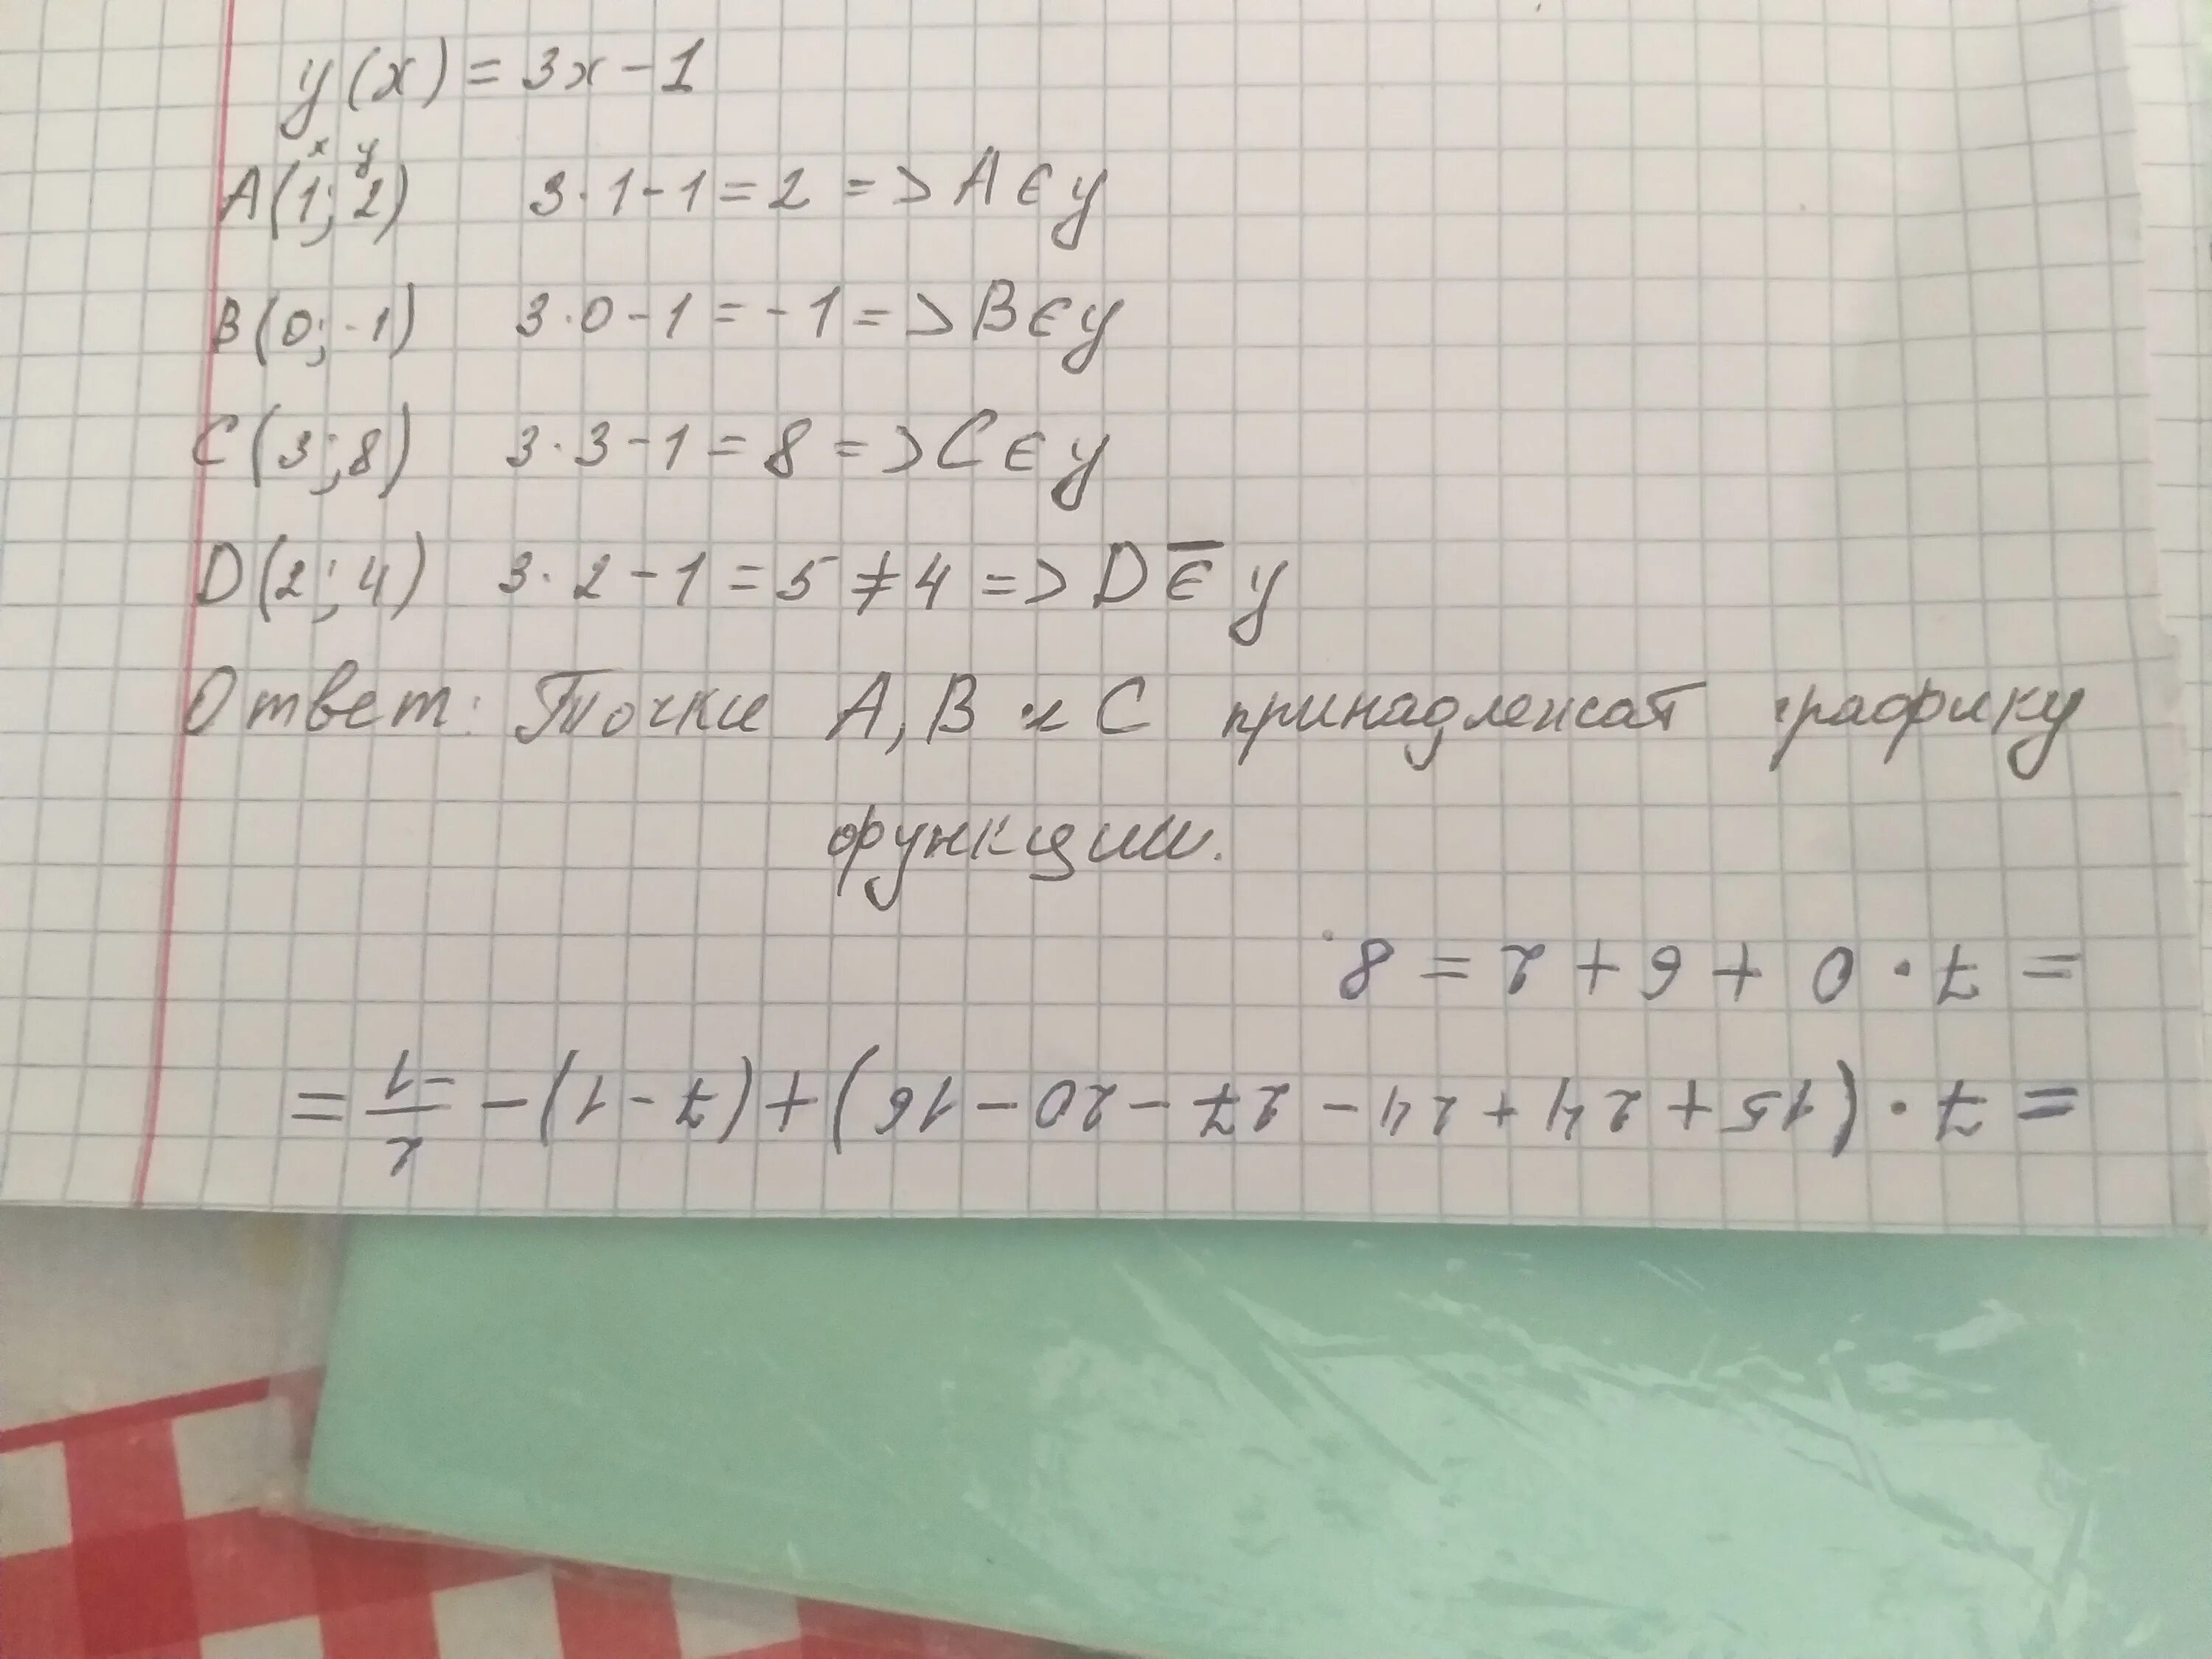 y(x) = 3x - 1
x y
A(1; 2) 3·1-1=2 => A ∈ y
B(0; -1) 3·0-1=-1 => B ∈ y
C(3; 8) 3·3-1=8 => C ∈ y
D(2; 4) 3·2-1=5≠4 => D ∈̅ y
Ответ: Точки A, B и C принадлежат графику
функции.
= 7·(15+24+24-27-20-16)+(7-1)-2/-1=
= 7·0+6+2=8.